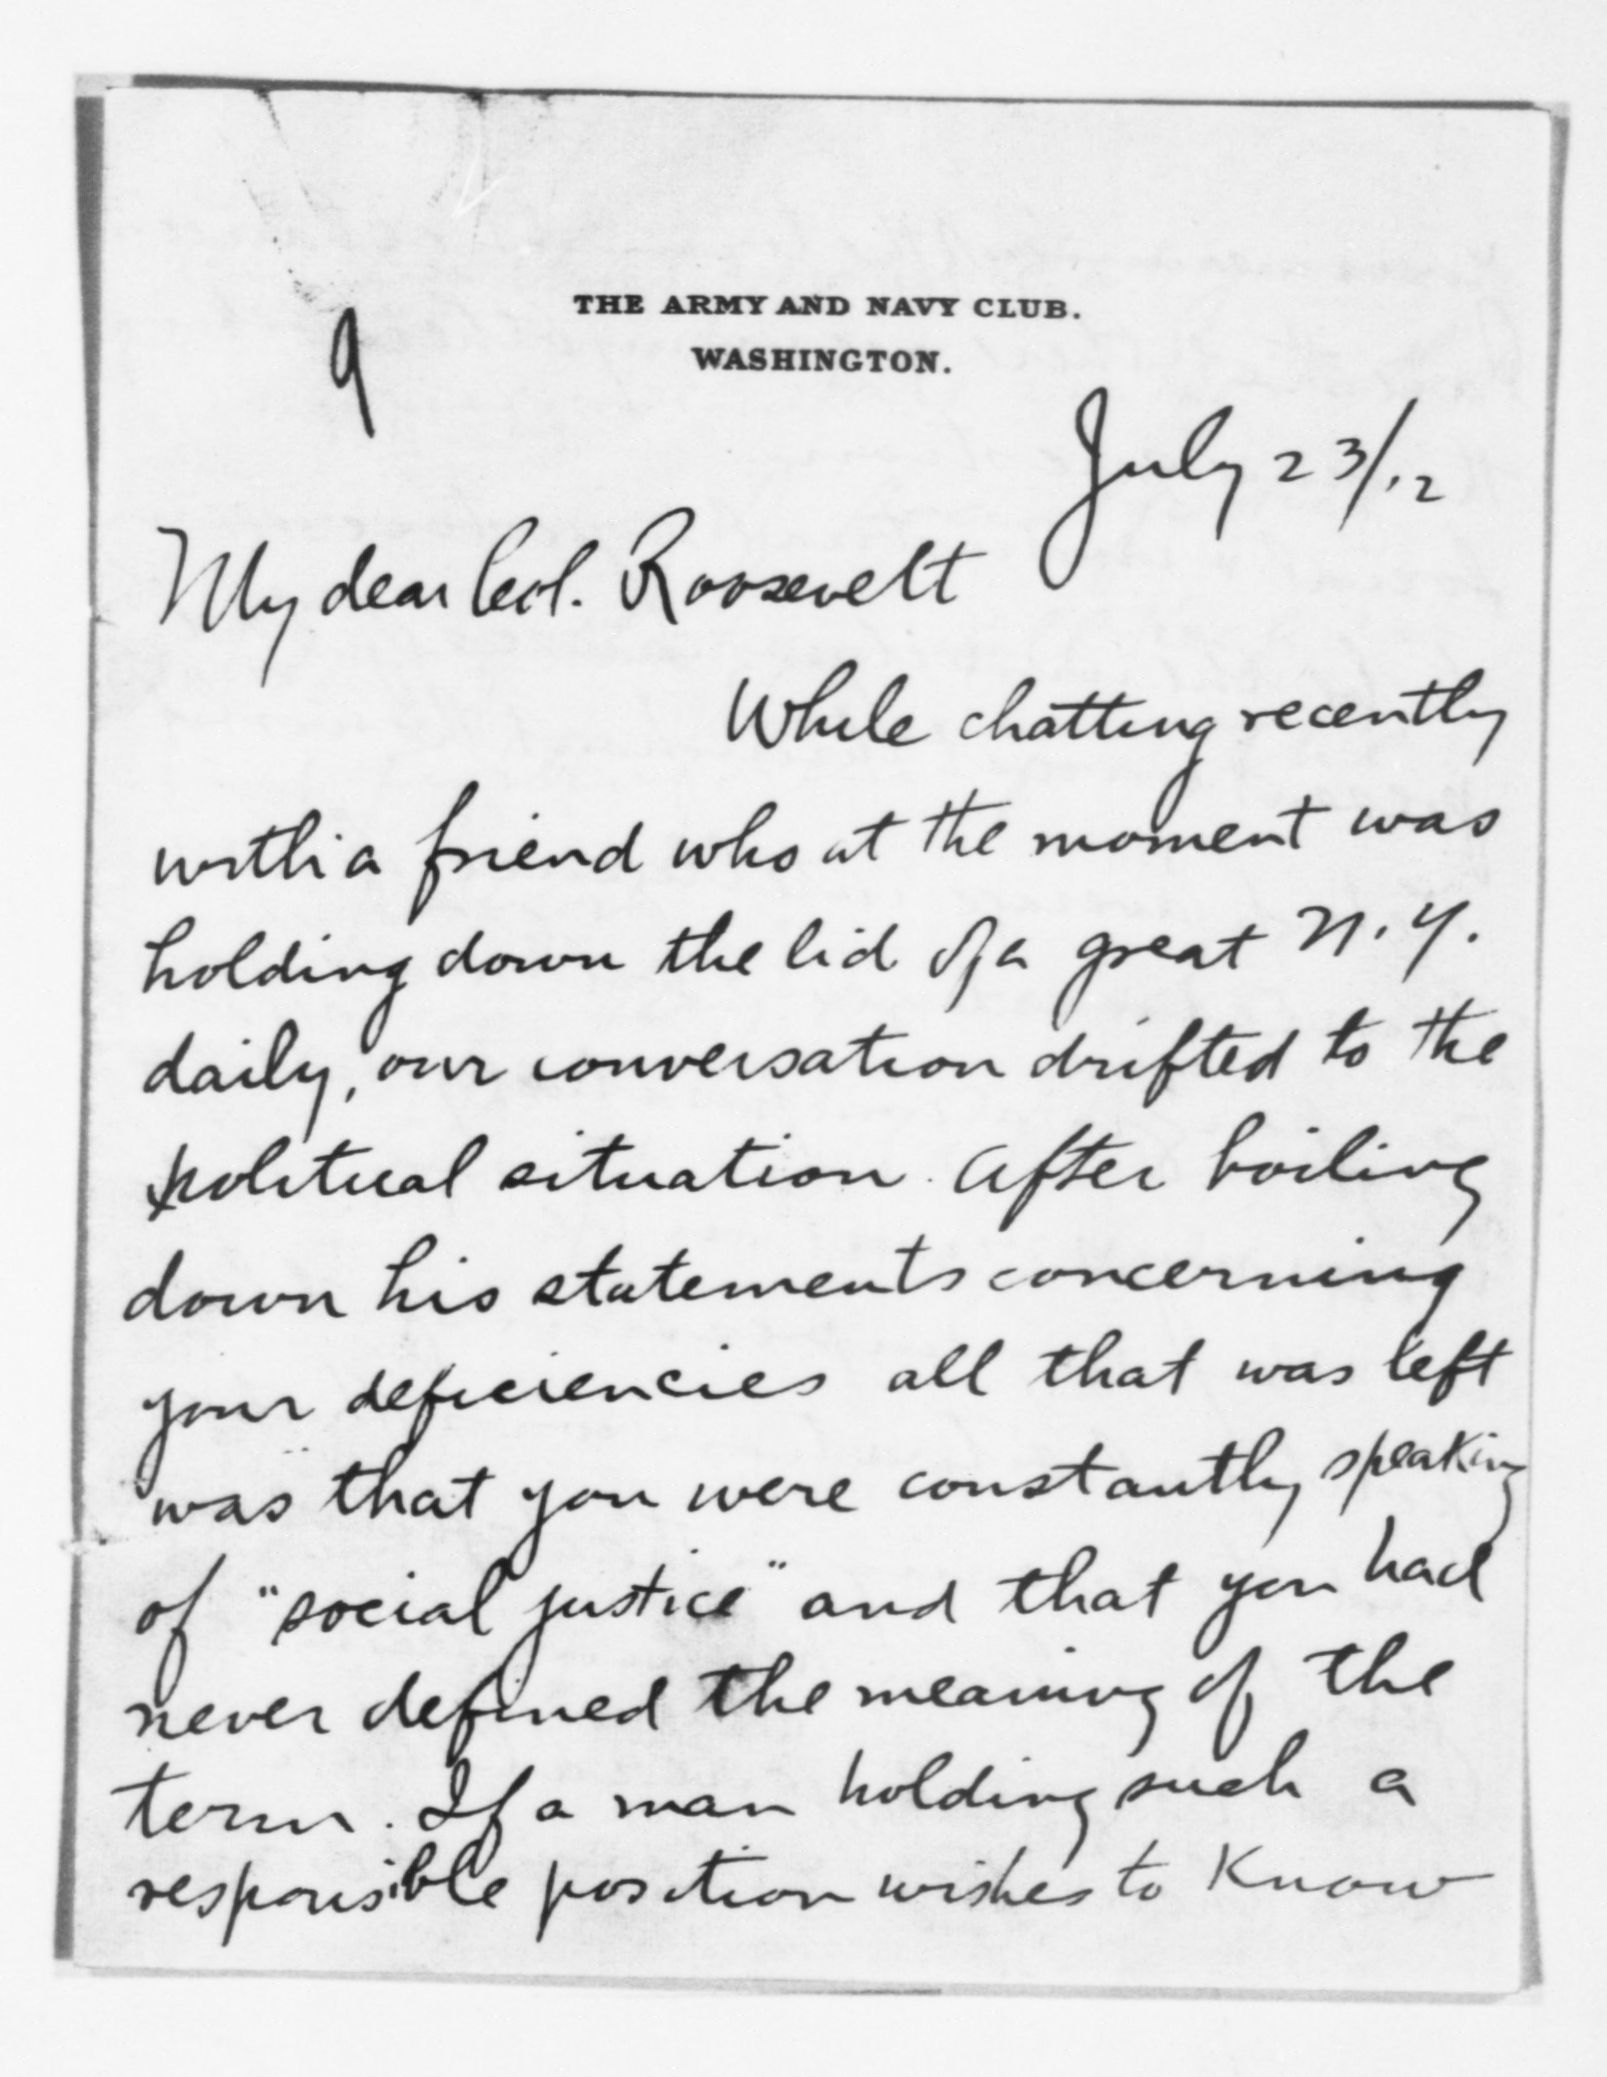 THE ARMY AND NAVY CLUB.
WASHINGTON.
9
July 23/12
My dear Col. Roosevelt
While chatting recently
with a friend who at the moment was
holding down the lid of a great N.Y.
daily, our conversation drifted to the
political situation. After boiling
down his statements concerning
your deficiencies all that was left
was that you were constantly speaking
of "social justice" and that you had
never defined the meaning of the
term. If a man holding such a
responsible position wishes to know